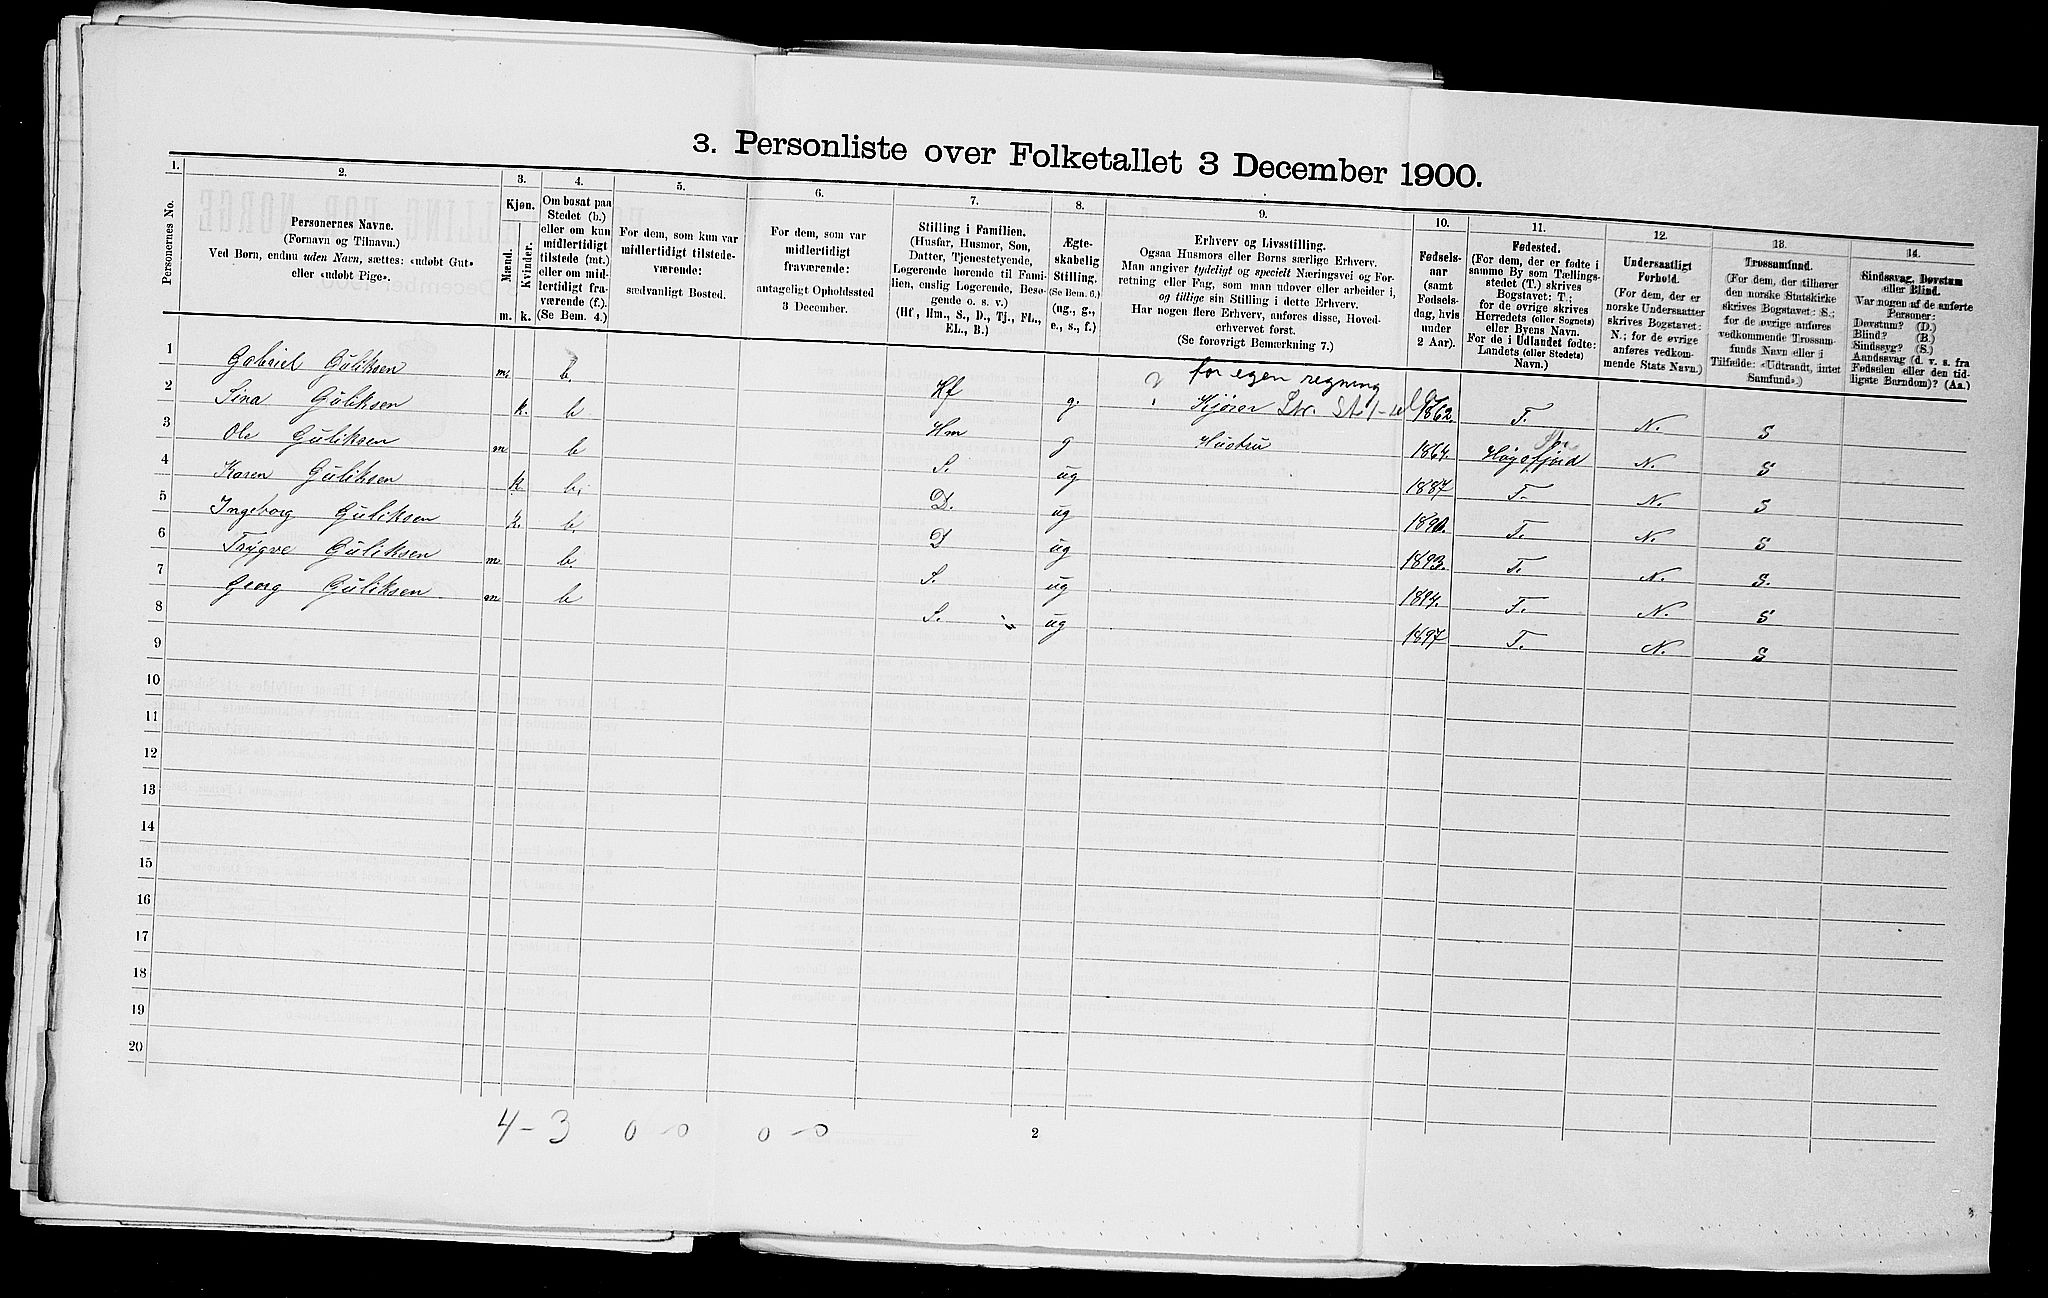 3. Personliste over Folketallet 3 December 1900.
1.
Personernes No.
2.
Personernes Navne.
(Fornavn og Tilnavn.)
Ved Børn, endnu uden Navn, sættes: «udøbt Gut»
eller «udøbt Pige».
3.
Kjøn.
Mænd.
Kvinder.
m. k.
4.
Om bosat paa
Stedet (b.)
eller om kun
midlertidigt
tilstede (mt.)
eller om mid-
lertidigt fra-
værende (f.).
(Se Bem. 4.)
5.
For dem, som kun var
midlertidigt tilstede-
værende:
sædvanligt Bosted.
6.
For dem, som var
midlertidigt
fraværende:
antageligt Opholdssted
3 December.
7.
Stilling i Familien.
(Husfar, Husmor, Søn,
Datter, Tjenestetyende,
Logerende hørende til Fami-
lien, enslig Logerende, Besø-
gende o. s. v.)
(Hf., Hm., S., D., Tj., FL.,
EL., B.)
8.
Ægte-
skabelig
Stilling.
(Se Bem. 6.)
(ug., g.,
e., s., f.)
9.
Erhverv og Livsstilling.
Ogsaa Husmors eller Børns særlige Erhverv.
Man angiver tydeligt og specielt Næringsvei og For-
retning eller Fag, som man udøver eller arbeider i,
og tillige sin Stilling i dette Erhverv.
Har nogen flere Erhverv, anføres disse, Hoved-
erhvervet først.
(Se forøvrigt Bemærkning 7.)
10.
Fødsels-
aar
(samt
Fødsels-
dag, hvis
under
2 Aar).
11.
Fødested.
(For dem, der er fødte i
samme By som Tællings-
stedet (T.) skrives
Bogstavet: T.;
for de øvrige skrives
Herredets (eller Sognets)
eller Byens Navn.
For de i Udlandet fødte:
Landets (eller Stedets)
Navn.)
12.
Undersaatligt
Forhold.
(For dem, der er
norske Undersaatter
skrives Bogstavet:
N.; for de øvrige
anføres vedkom-
mende Stats Navn.)
13.
Trossamfund.
(For dem, der tilhører
den norske Statskirke
skrives Bogstavet: S.;
for de øvrige anføres
vedkommende Trossam-
funds Navn eller i
Tilfælde: «Udtraadt, intet
Samfund».)
14.
Sindssvag, Døvstum
eller Blind.
Var nogen af de anførte
Personer:
Døvstum? (D.)
Blind? (B.)
Sindssyg? (S.)
Aandssvag (d. v. s. fra
Fødselen eller den tid-
ligste Barndom)? (Aa.)
for egen regning
1 Gabriel Guliksen m. b. Hf g. Kjører 1862. T. N. S
2 Sina Guliksen k. b Hm g Hustru 1864. Høgsfjord N. S
3 Ole Guliksen m b S. ug 1887 T. N. S
4 Karen Guliksen k. b. D. ug 1890. T. N. S
5 Ingeborg Guliksen k. b. D ug 1893. T. N. S.
6 Trygve Guliksen m b. S. ug 1894. T. N. S
7 Georg Guliksen m b S. ug 1897 T. N. S
8
9
10
11
12
13
14
15
16
17
18
19
20
4-3 0-0 0-0
2